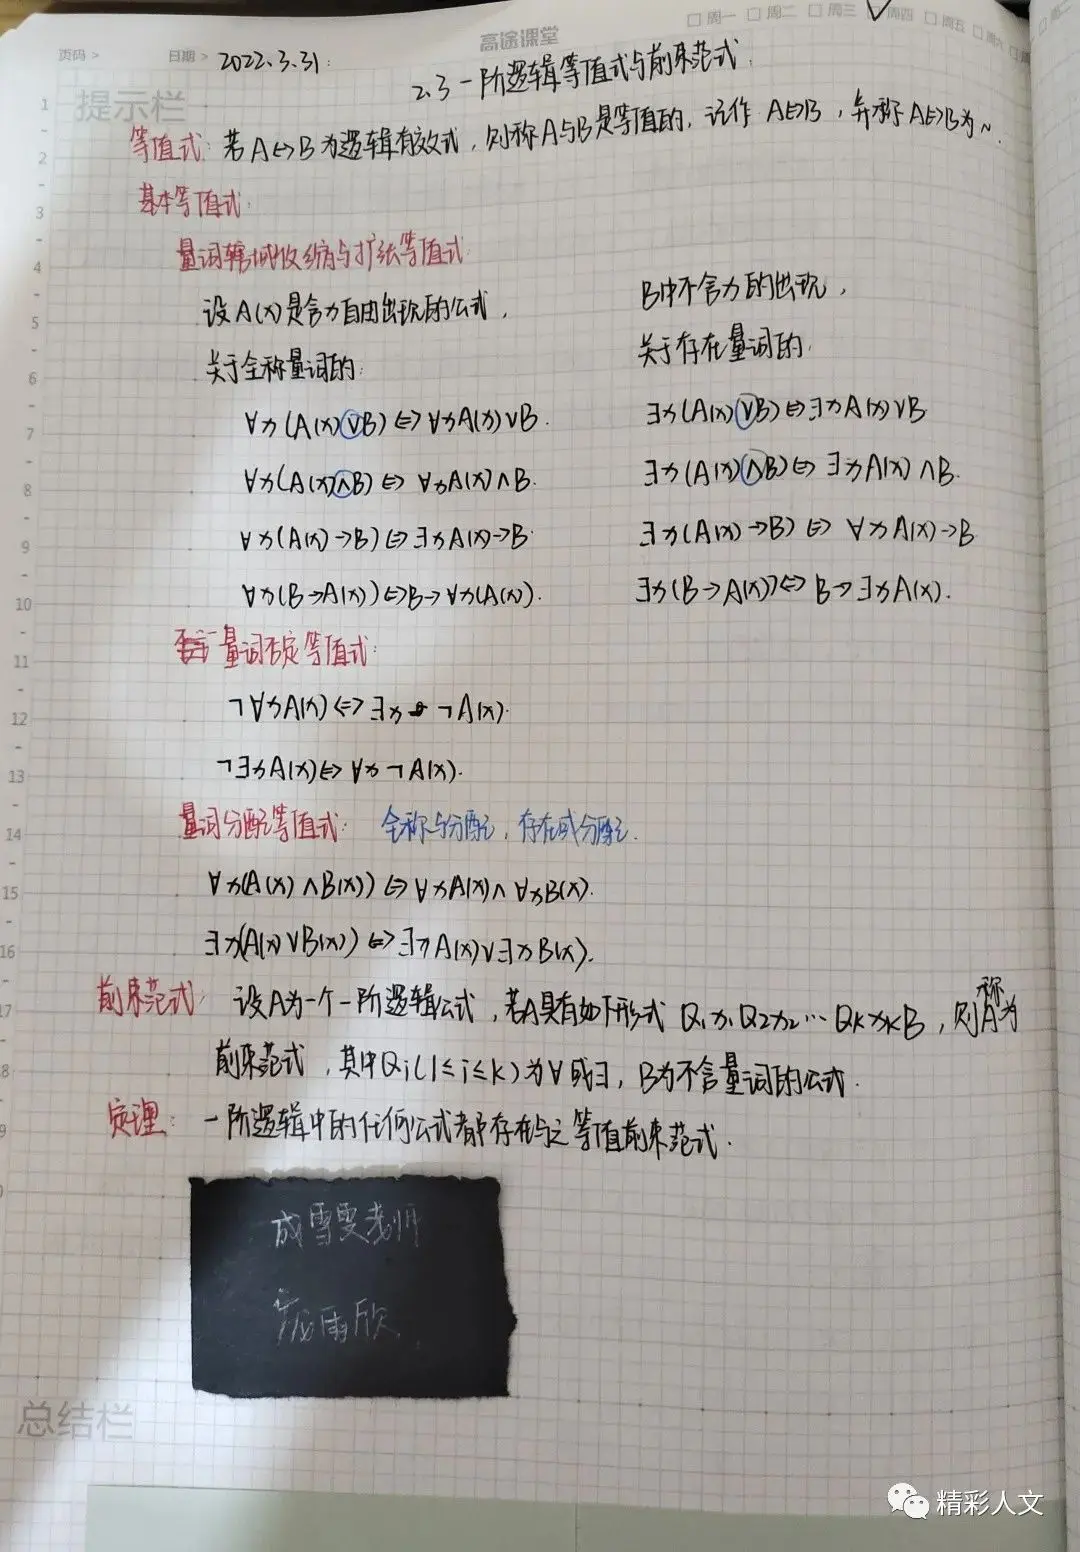 高途课堂
□周一 □周二 □周三 □周四 □周五 □周六
页码 > 日期 > 2022.3.31.
2.3 一阶逻辑等值式与前束范式.
提示栏
等值式: 若A↔B为逻辑有效式, 则称A与B是等值的, 记作 A⇔B, 并称A⇔B为~.
基本等值式:
量词辖域收缩与扩张等值式:
设A(x)是含x自由出现的公式, B中不含x的出现,
关于全称量词的: 关于存在量词的:
∀x(A(x)∨B)⇔∀xA(x)∨B. ∃x(A(x)∨B)⇔∃xA(x)∨B
∀x(A(x)∧B)⇔∀xA(x)∧B. ∃x(A(x)∧B)⇔∃xA(x)∧B.
∀x(A(x)→B)⇔∃xA(x)→B. ∃x(A(x)→B)⇔∀xA(x)→B
∀x(B→A(x))⇔B→∀x(A(x). ∃x(B→A(x))⇔B→∃xA(x).
量词否定等值式:
¬∀xA(x)⇔∃x¬A(x).
¬∃xA(x)⇔∀x¬A(x).
量词分配等值式: 全称与分配, 存在或分配.
∀x(A(x)∧B(x))⇔∀xA(x)∧∀xB(x).
∃x(A(x)∨B(x))⇔∃xA(x)∨∃xB(x).
前束范式: 设A为一个一阶逻辑公式, 若A具有如下形式 Q₁x₁Q₂x₂…QₖxₖB, 则称A为
前束范式, 其中Qi(1≤i≤k)为∀或∃, B为不含量词的公式.
定理: 一阶逻辑中的任何公式都存在与之等值前束范式.
成雪雯老师
庞雨欣
总结栏
精彩人文